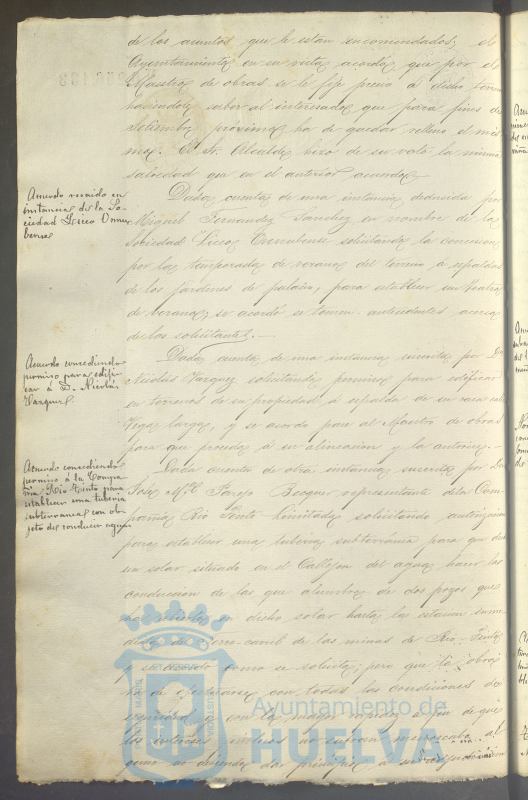 de los asuntos que le estan encomendados; el
Ayuntamiento en su vista acordó, que por el
Maestro de obras se le fije precio á dicho
haciendole saber al interesado que para fines de
Setiembre proximo ha de quedar relleno el mis
mo. El Sr. Alcalde hizo de su voto la misma
salvedad que en el anterior acuerdo
Acuerdo recaido en
instancia de la So-
ciedad Liceo Onu
bense
Dada cuenta de una instancia deducida por
Miguel Fernandez Sanchez en nombre de la
Sociedad Liceo Onubense solicitando la concesion
por la temporada de verano del terreno á espaldas
de los jardines de palacio, para establecer un teatro
de verano, se acordó se tomen antecedentes acerca
de los solicitantes.
Acuerdo concediendo
permiso para edifi
car á D. Nicolás
Vazquez
Dada cuenta de una instancia suscrita por Dn
Nicolás Vazquez solicitando permiso para edificar
en terrenos de su propiedad á espalda de su casa calle
Vega larga, y se acordó pase al Maestro de obras
para que proceda á su alineacion y la autorice.
Acuerdo concediendo
permiso á la Compa
ñia Rio Tinto para
establecer una tuberia
subterranea con ob
jeto de conducir agua
Dada cuenta de otra instancia suscrita por Dn
José Mª Farejo Becquer representante de la Com
pañia Rio Tinto Limitada solicitando autorizacion
para establecer una tuberia subterránea para que desde
un solar situado en el Callejon del agua, hacer la
conduccion de las que alumbra de dos pozos que
ha abierto en dicho solar hasta la estacion
de ferro-carril de las minas de Rio-Tinto
y se acordó como se solicita; pero que la obra
ha de efectuarse con todas las condiciones de
seguridad y con la mayor rapidez á fin de que
los intereses no sufran menoscabo al
guno debiendo dar principio á
Ayuntamiento de
HUELVA